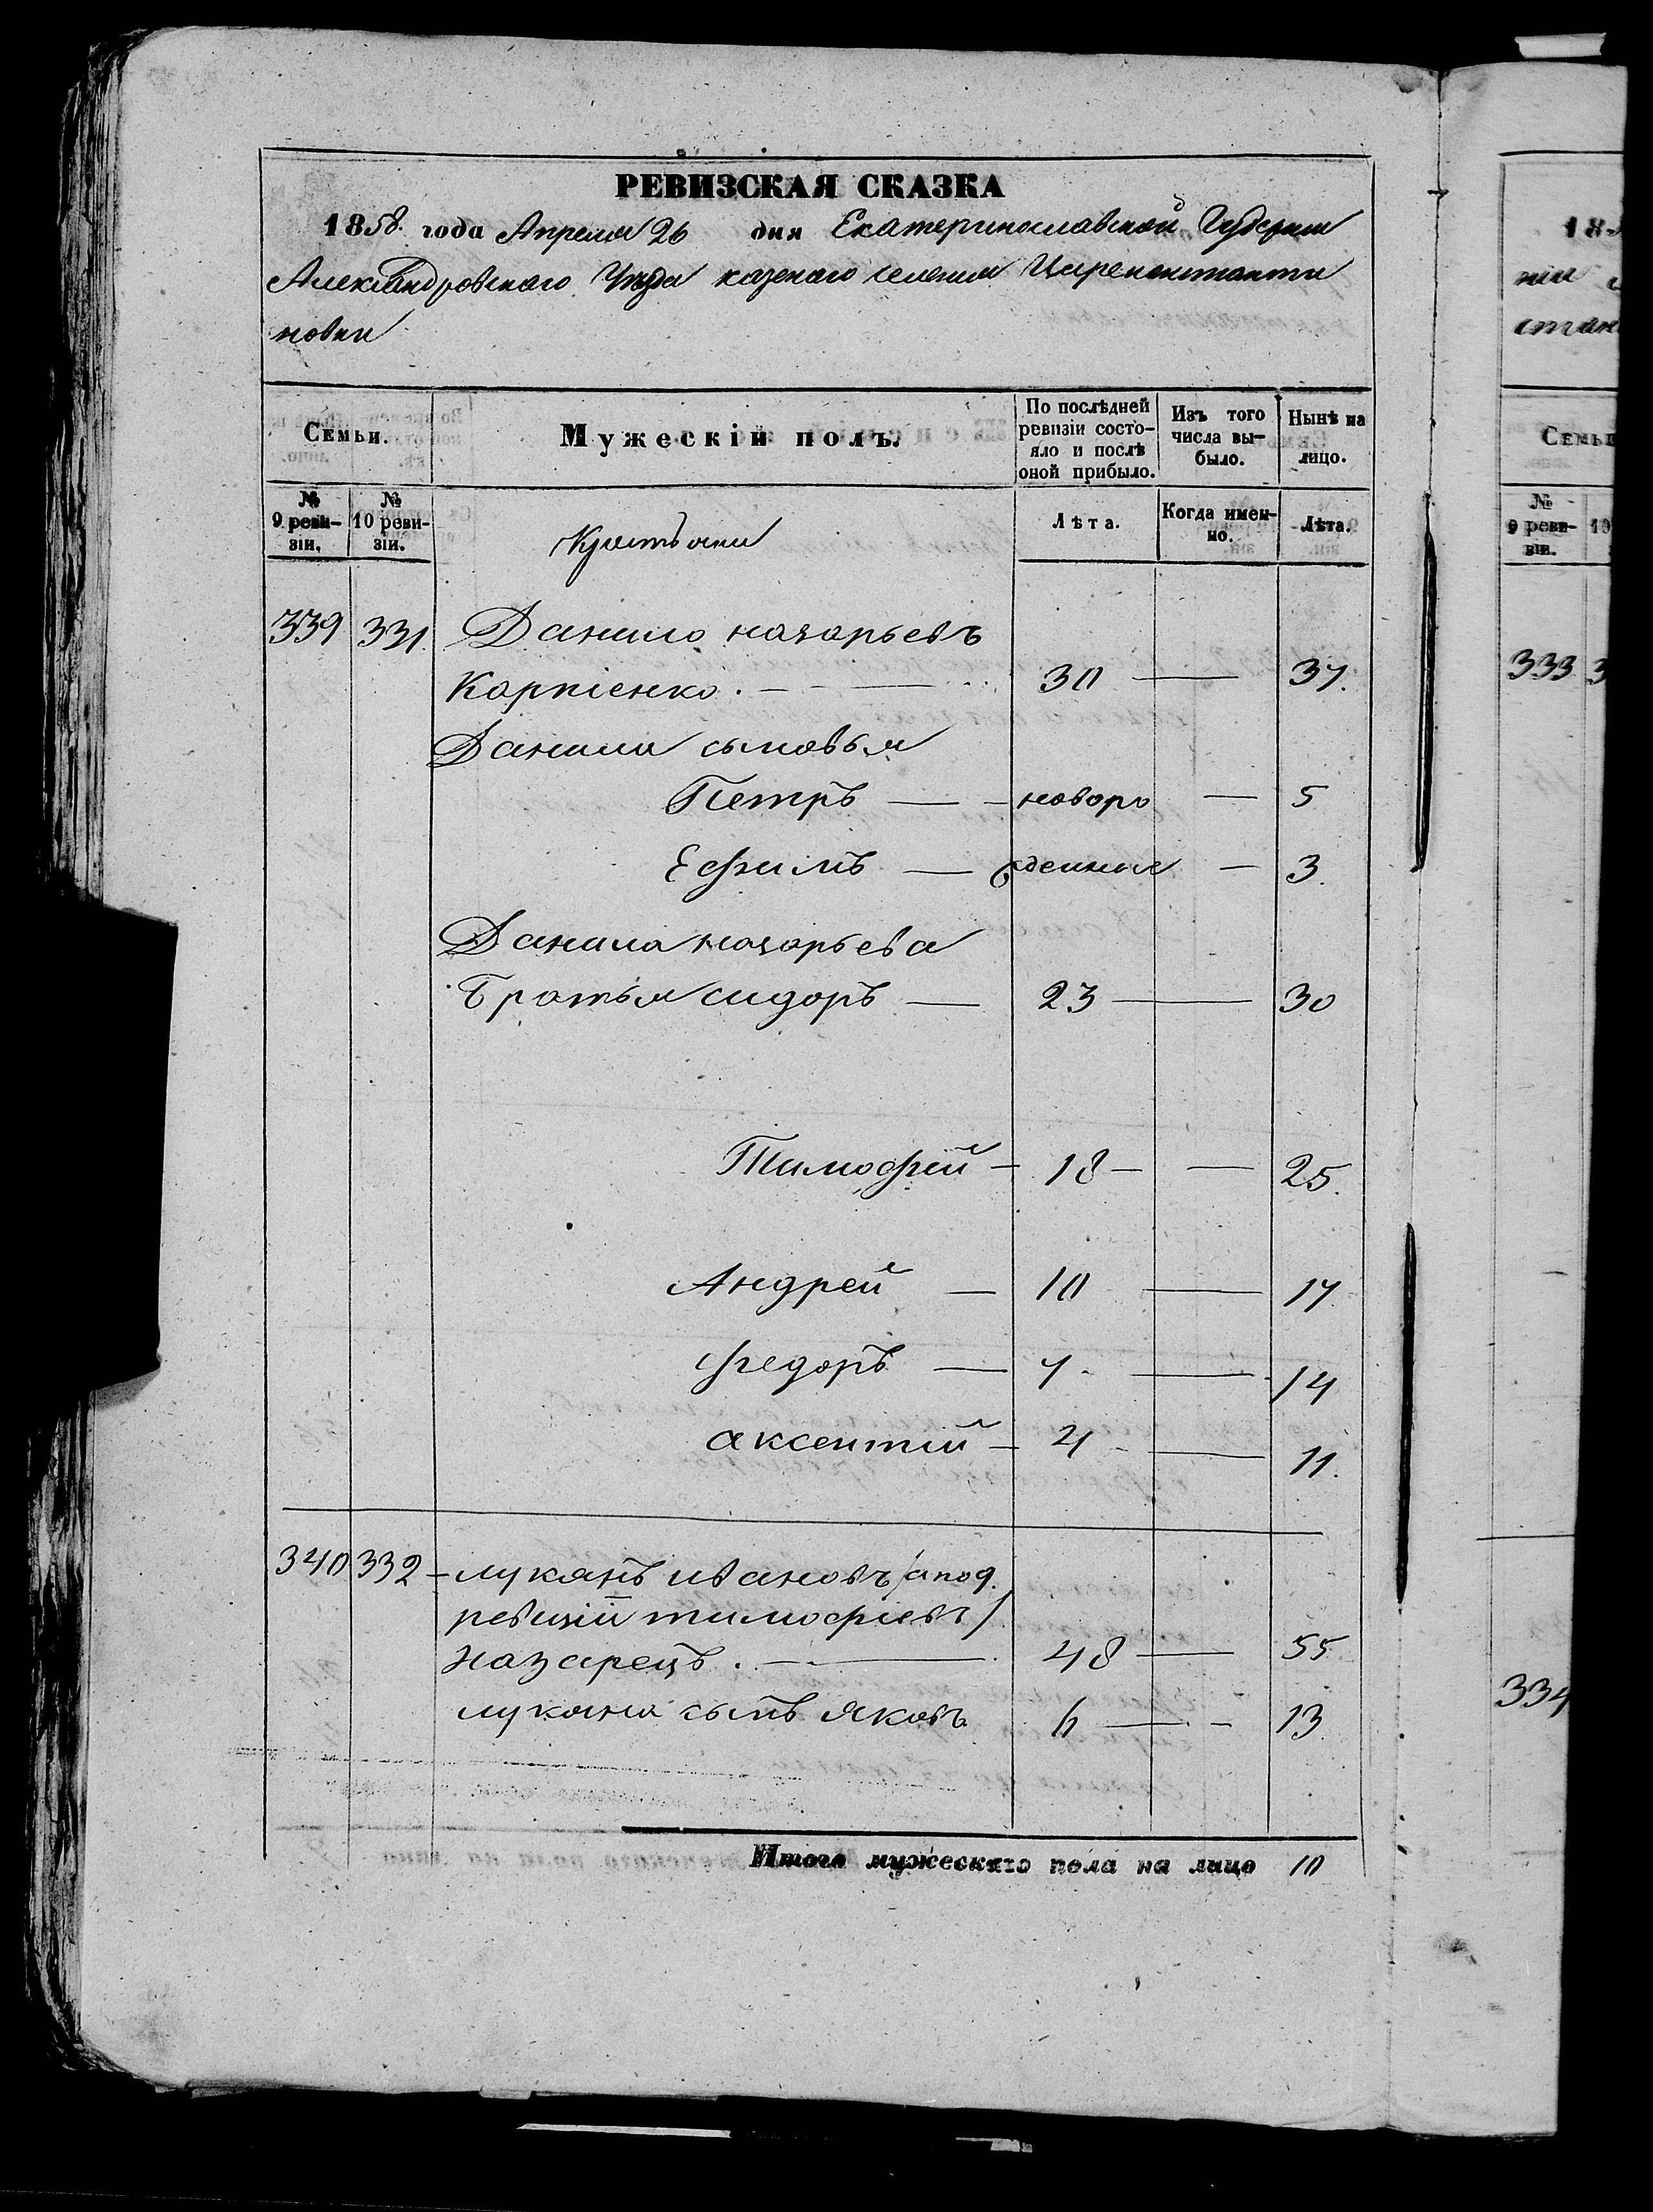 РЕВИЗСКАЯ СКАЗКА
1858. года Апреля 26 дня Екатеринославской Губернии
Александровского Уезда казенаго селения Цареконстанти
новки
Семьи.
Мужескій полъ.
По послѣдней ревизіи состо-яло и послѣ оной прибыло.
Изъ того числа вы-было.
Нынѣ на лицо.
№ 9 реви-зіи.
№ 10 реви-зіи.
Крестьяни
Лѣта.
Когда имен-но.
Лѣта.
339 331. Данило назарьевъ
Карпіенко. 30 — 37.
Данила сыновья
Петръ — новоро — 5
Ефимъ — жденные — 3.
Данила назарьева
Братья сидоръ — 23 — 30
Тимофей — 18 — 25.
Андрей — 10 — 17
Федоръ — 7 — 14
аксентій — 4 — 11.
340 332 лукянъ ивановъ /а по 9.
ревизіи тимофіевъ/
назарецъ. 48 — 55
лукяна сынъ яковъ 6 — 13.
Итого мужескаго пола на лицо 10
18
ніи
стан
Семьи
№ 9 реви-зіи.
10
333 3
334